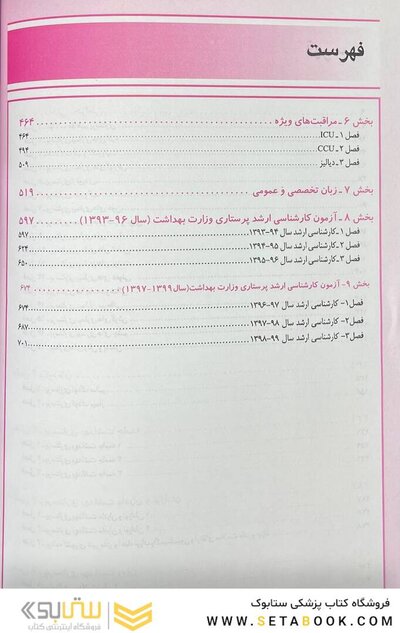 فهرست
بخش ۶ ـ مراقبت‌های ویژه ........ ۴۶۴
فصل ۱ ـ ICU ........ ۴۶۴
فصل ۲ ـ CCU ........ ۴۹۴
فصل ۳ ـ دیالیز ........ ۵۰۹
بخش ۷ ـ زبان تخصصی و عمومی ........ ۵۱۹
بخش ۸ ـ آزمون کارشناسی ارشد پرستاری وزارت بهداشت (سال ۹۶-۱۳۹۳) ........ ۵۹۷
فصل ۱ ـ کارشناسی ارشد سال ۹۴-۱۳۹۳ ........ ۵۹۷
فصل ۲ ـ کارشناسی ارشد سال ۹۵-۱۳۹۴ ........ ۶۲۴
فصل ۳ ـ کارشناسی ارشد سال ۹۶-۱۳۹۵ ........ ۶۵۰
بخش ۹- آزمون کارشناسی ارشد پرستاری وزارت بهداشت(سال۱۳۹۹-۱۳۹۷) ........ ۶۷۴
فصل ۱- کارشناسی ارشد سال ۹۷-۱۳۹۶ ........ ۶۷۴
فصل ۲- کارشناسی ارشد سال ۹۸-۱۳۹۷ ........ ۶۸۷
فصل ۳- کارشناسی ارشد سال ۹۹-۱۳۹۸ ........ ۷۰۱
فروشگاه کتاب پزشکی ستابوک
WWW.SETABOOK.COM
ستابوک
فروشگاه اینترنتی کتاب